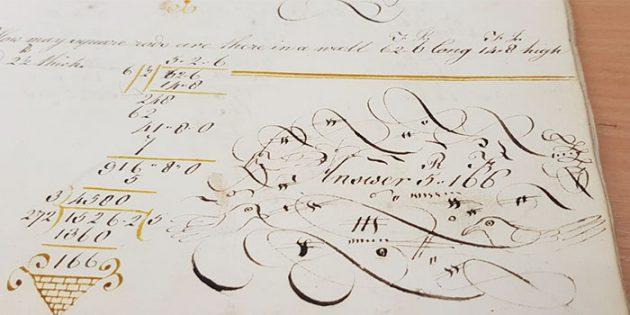 How may square rods are there in a wall 62"6 long 14"8 high
2½ thick
14"8
248
62
41"8"0
7
916"8"0
5
272)1526-2(5
1360
166
Answer 5"166